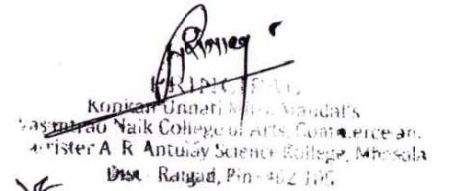 PRINCIPAL
Konkan Unnati Mitra Mandal's
Vasantrao Naik College of Arts, Commerce an
rrister A. R. Antulay Science College, Mhasala
Dist - Raigad, Pin - 402 105